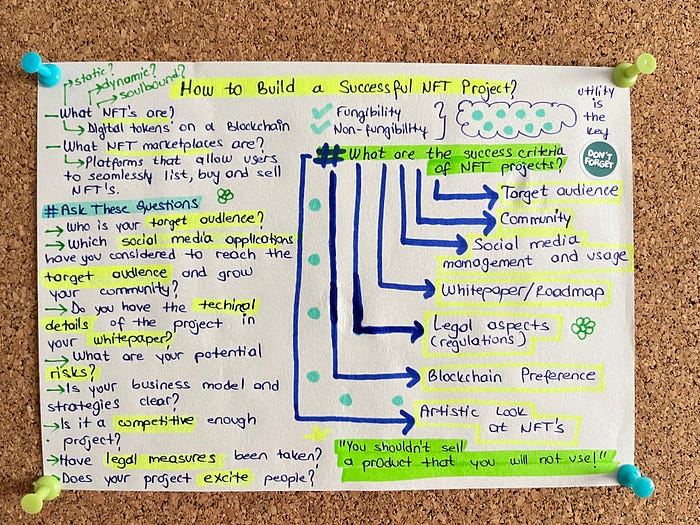 static?
dynamic?
soulbound?
How to Build a Successful NFT Project?
utility
is
the
key
DON'T
FORGET
What NFT's are?
Digital tokens on a Blockchain
What NFT marketplaces are?
Platforms that allow users
to seamlessly list, buy and sell
NFT's.
Fungibility
Non-fungibility
#Ask These Questions
Who is your target audience?
Which social media applications
have you considered to reach the
target audience and grow
your community?
Do you have the techinal
details of the project in
your whitepaper?
What are your potential
risks?
Is your business model and
strategies clear?
Is it a competitive enough
project?
Have legal measures been taken?
Does your project excite people?
# What are the success criteria
of NFT projects?
Target audience
Community
Social media
management and usage
Whitepaper/Roadmap
Legal aspects
(regulations)
Blockchain Preference
Artistic Look
at NFT's
"You shouldn't sell
a product that you will not use!"